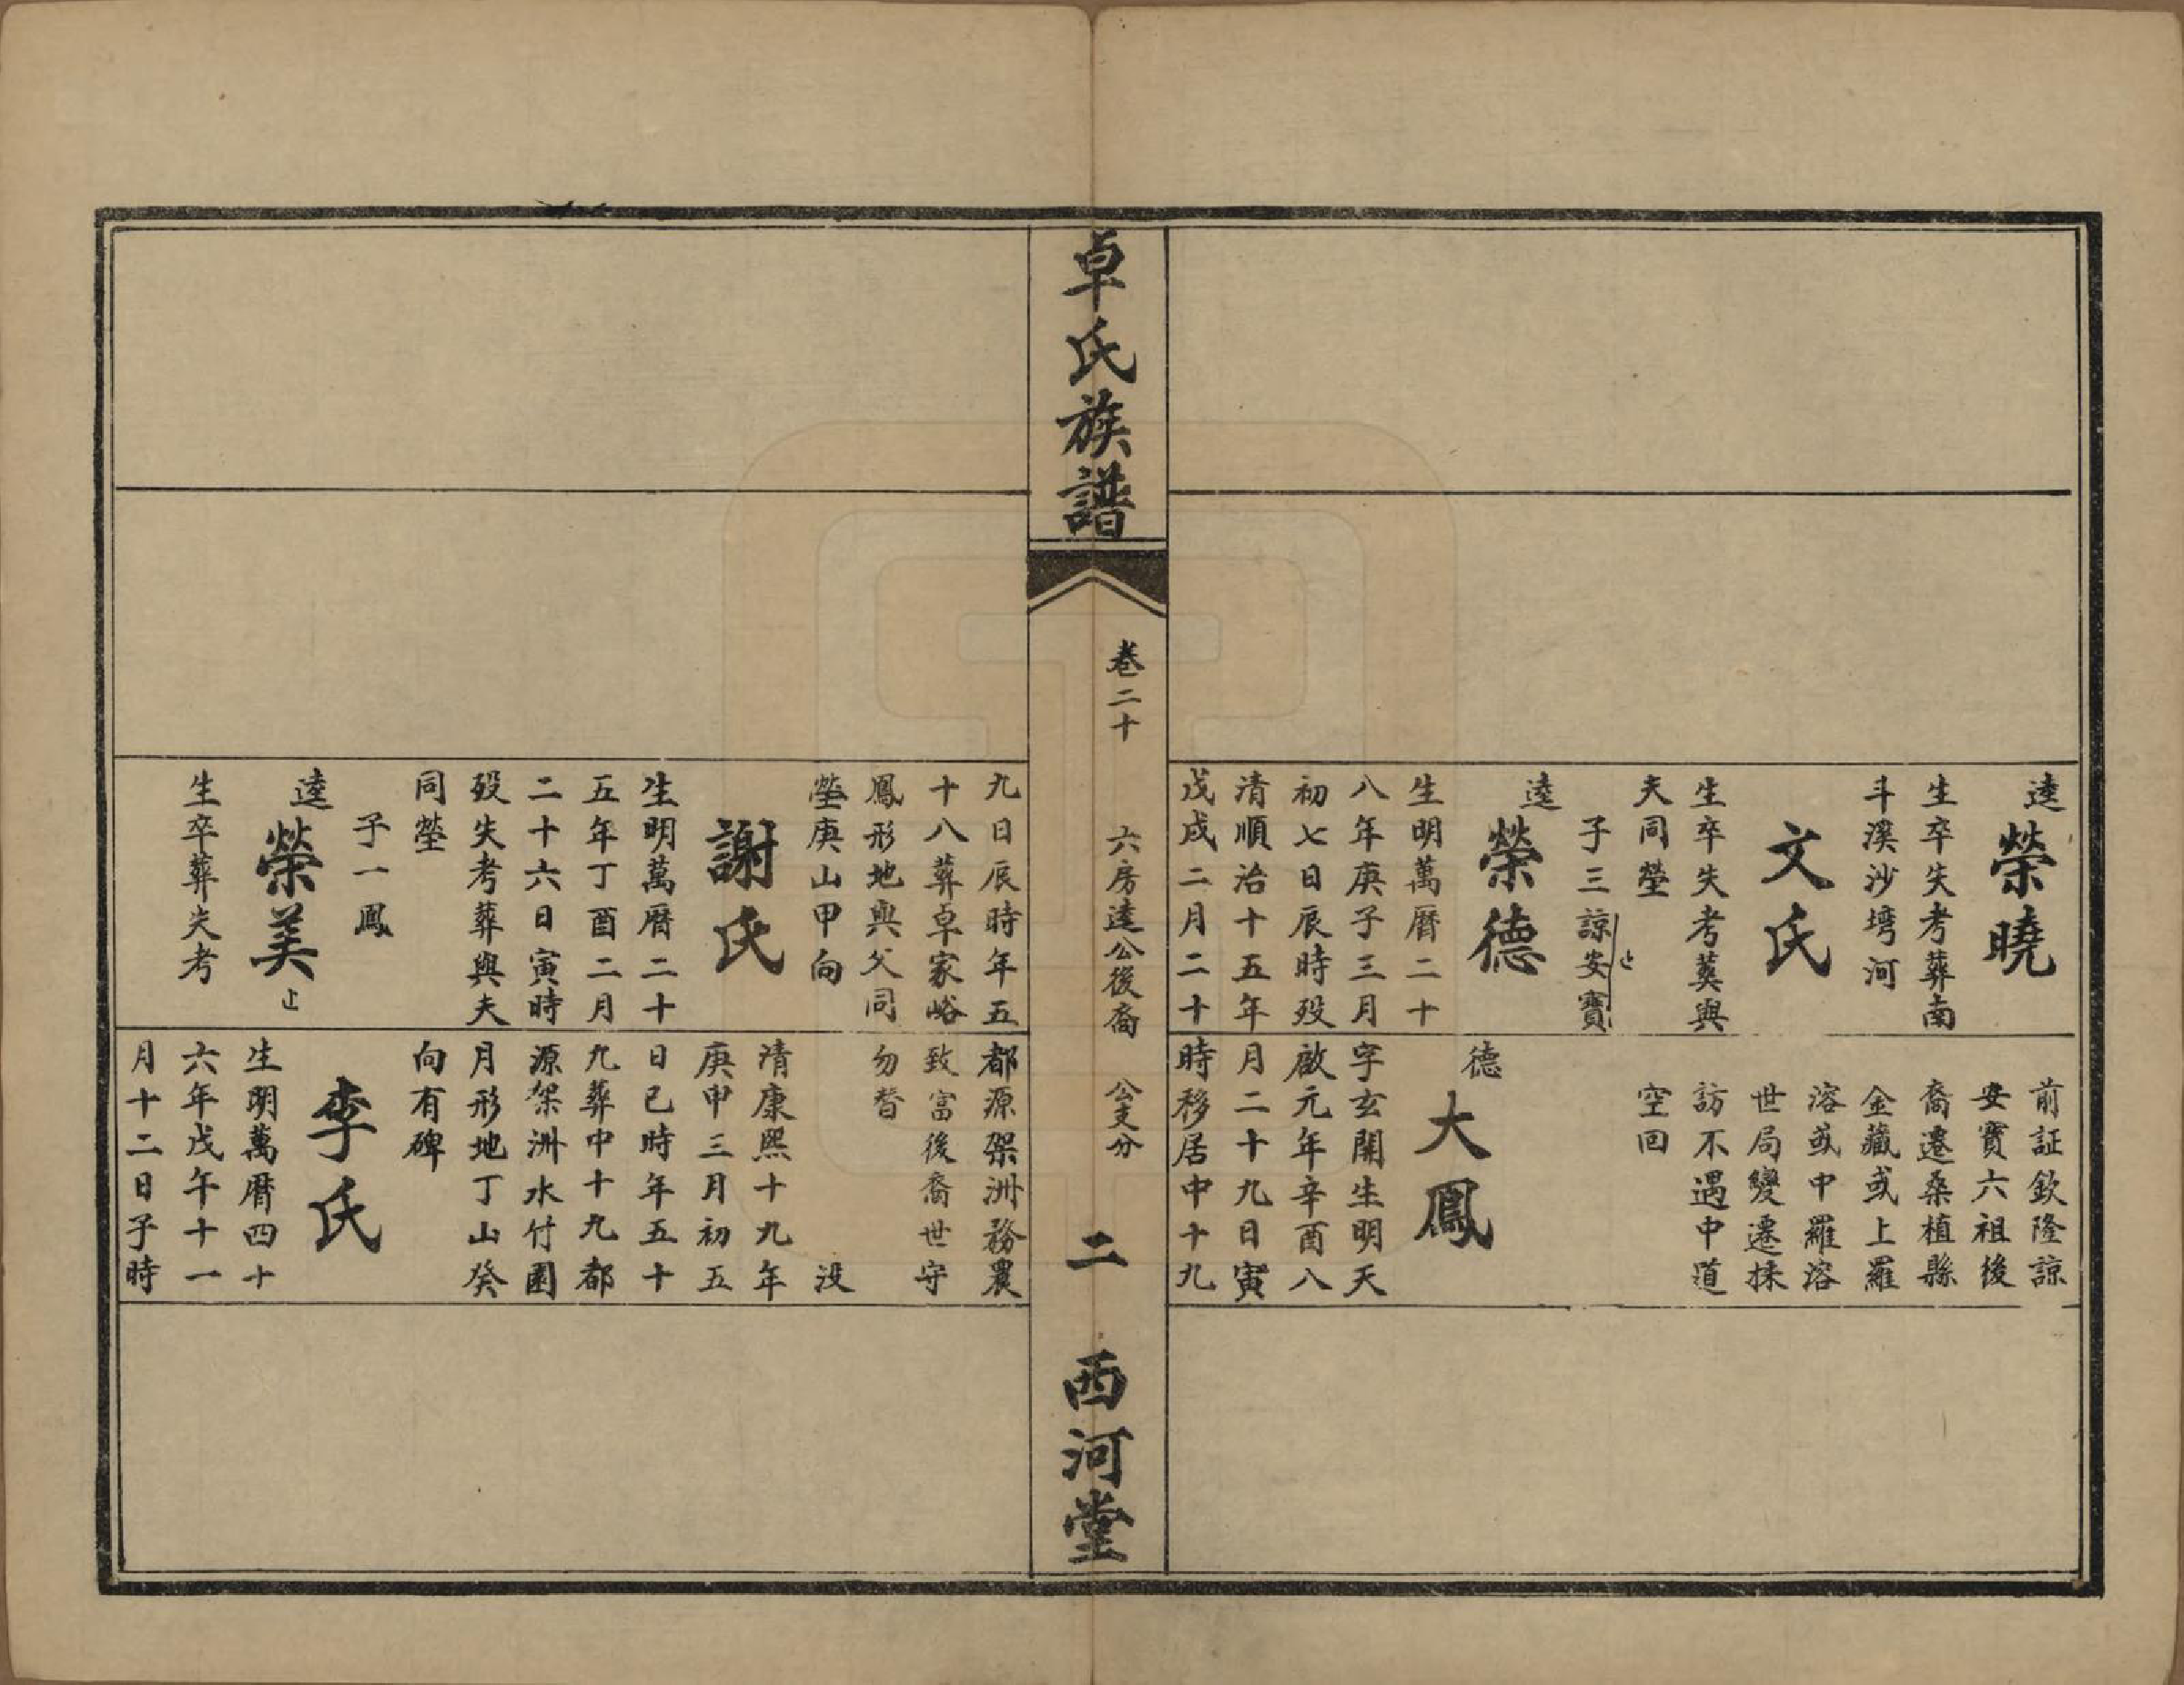 逵
榮曉
生卒失考葬南
斗溪沙塆河
文氏
生卒失考塟與
夫同塋
子三諒安寶
止
逵
榮德
生明萬曆二十
八年庚子三月
初七日辰時殁
清順治十五年
戊戌二月二十
前証欽隆諒
安寶六祖後
裔遷桑植縣
金藏或上羅
溶或中羅溶
世局變遷採
訪不遇中道
空回
德
大鳳
字玄開生明天
啟元年辛酉八
月二十九日寅
時移居中十九
卓氏族譜
卷二十
六房逵公後裔
公支分
二
西河堂
九日辰時年五
十八葬卓家峪
鳳形地與父同
塋庚山甲向
謝氏
生明萬曆二十
五年丁酉二月
二十六日寅時
殁失考葬與夫
同塋
子一鳳
逵
榮美
止
生卒葬失考
都源架洲務農
致富後裔世守
勿替
没
清康熙十九年
庚申三月初五
日已時年五十
九葬中十九都
源架洲水付園
月形地丁山癸
向有碑
李氏
生明萬曆四十
六年戊午十一
月十二日子時